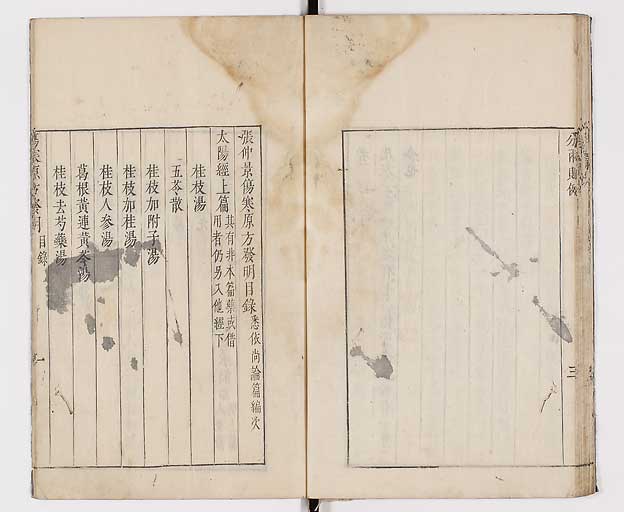 張仲景傷寒原方發明目錄悉依尚論篇編次
太陽經上篇其有非本篇藥或借
用者仍另入他經下
桂枝湯
五苓散
桂枝加附子湯
桂枝加桂湯
桂枝人參湯
葛根黃連黃芩湯
桂枝去芍藥湯
傷寒原方發明 目錄
三